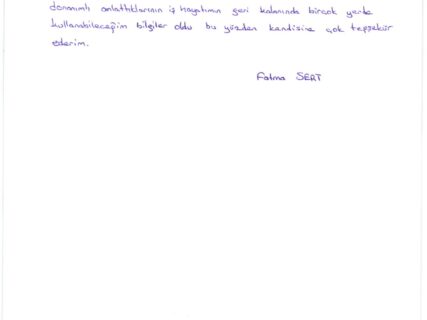 donanımlı anlattıklarının iş hayatımın geri kalanında birçok yerde
kullanabileceğim bilgiler oldu bu yüzden kendisine çok teşekkür
ederim.
Fatma SERT